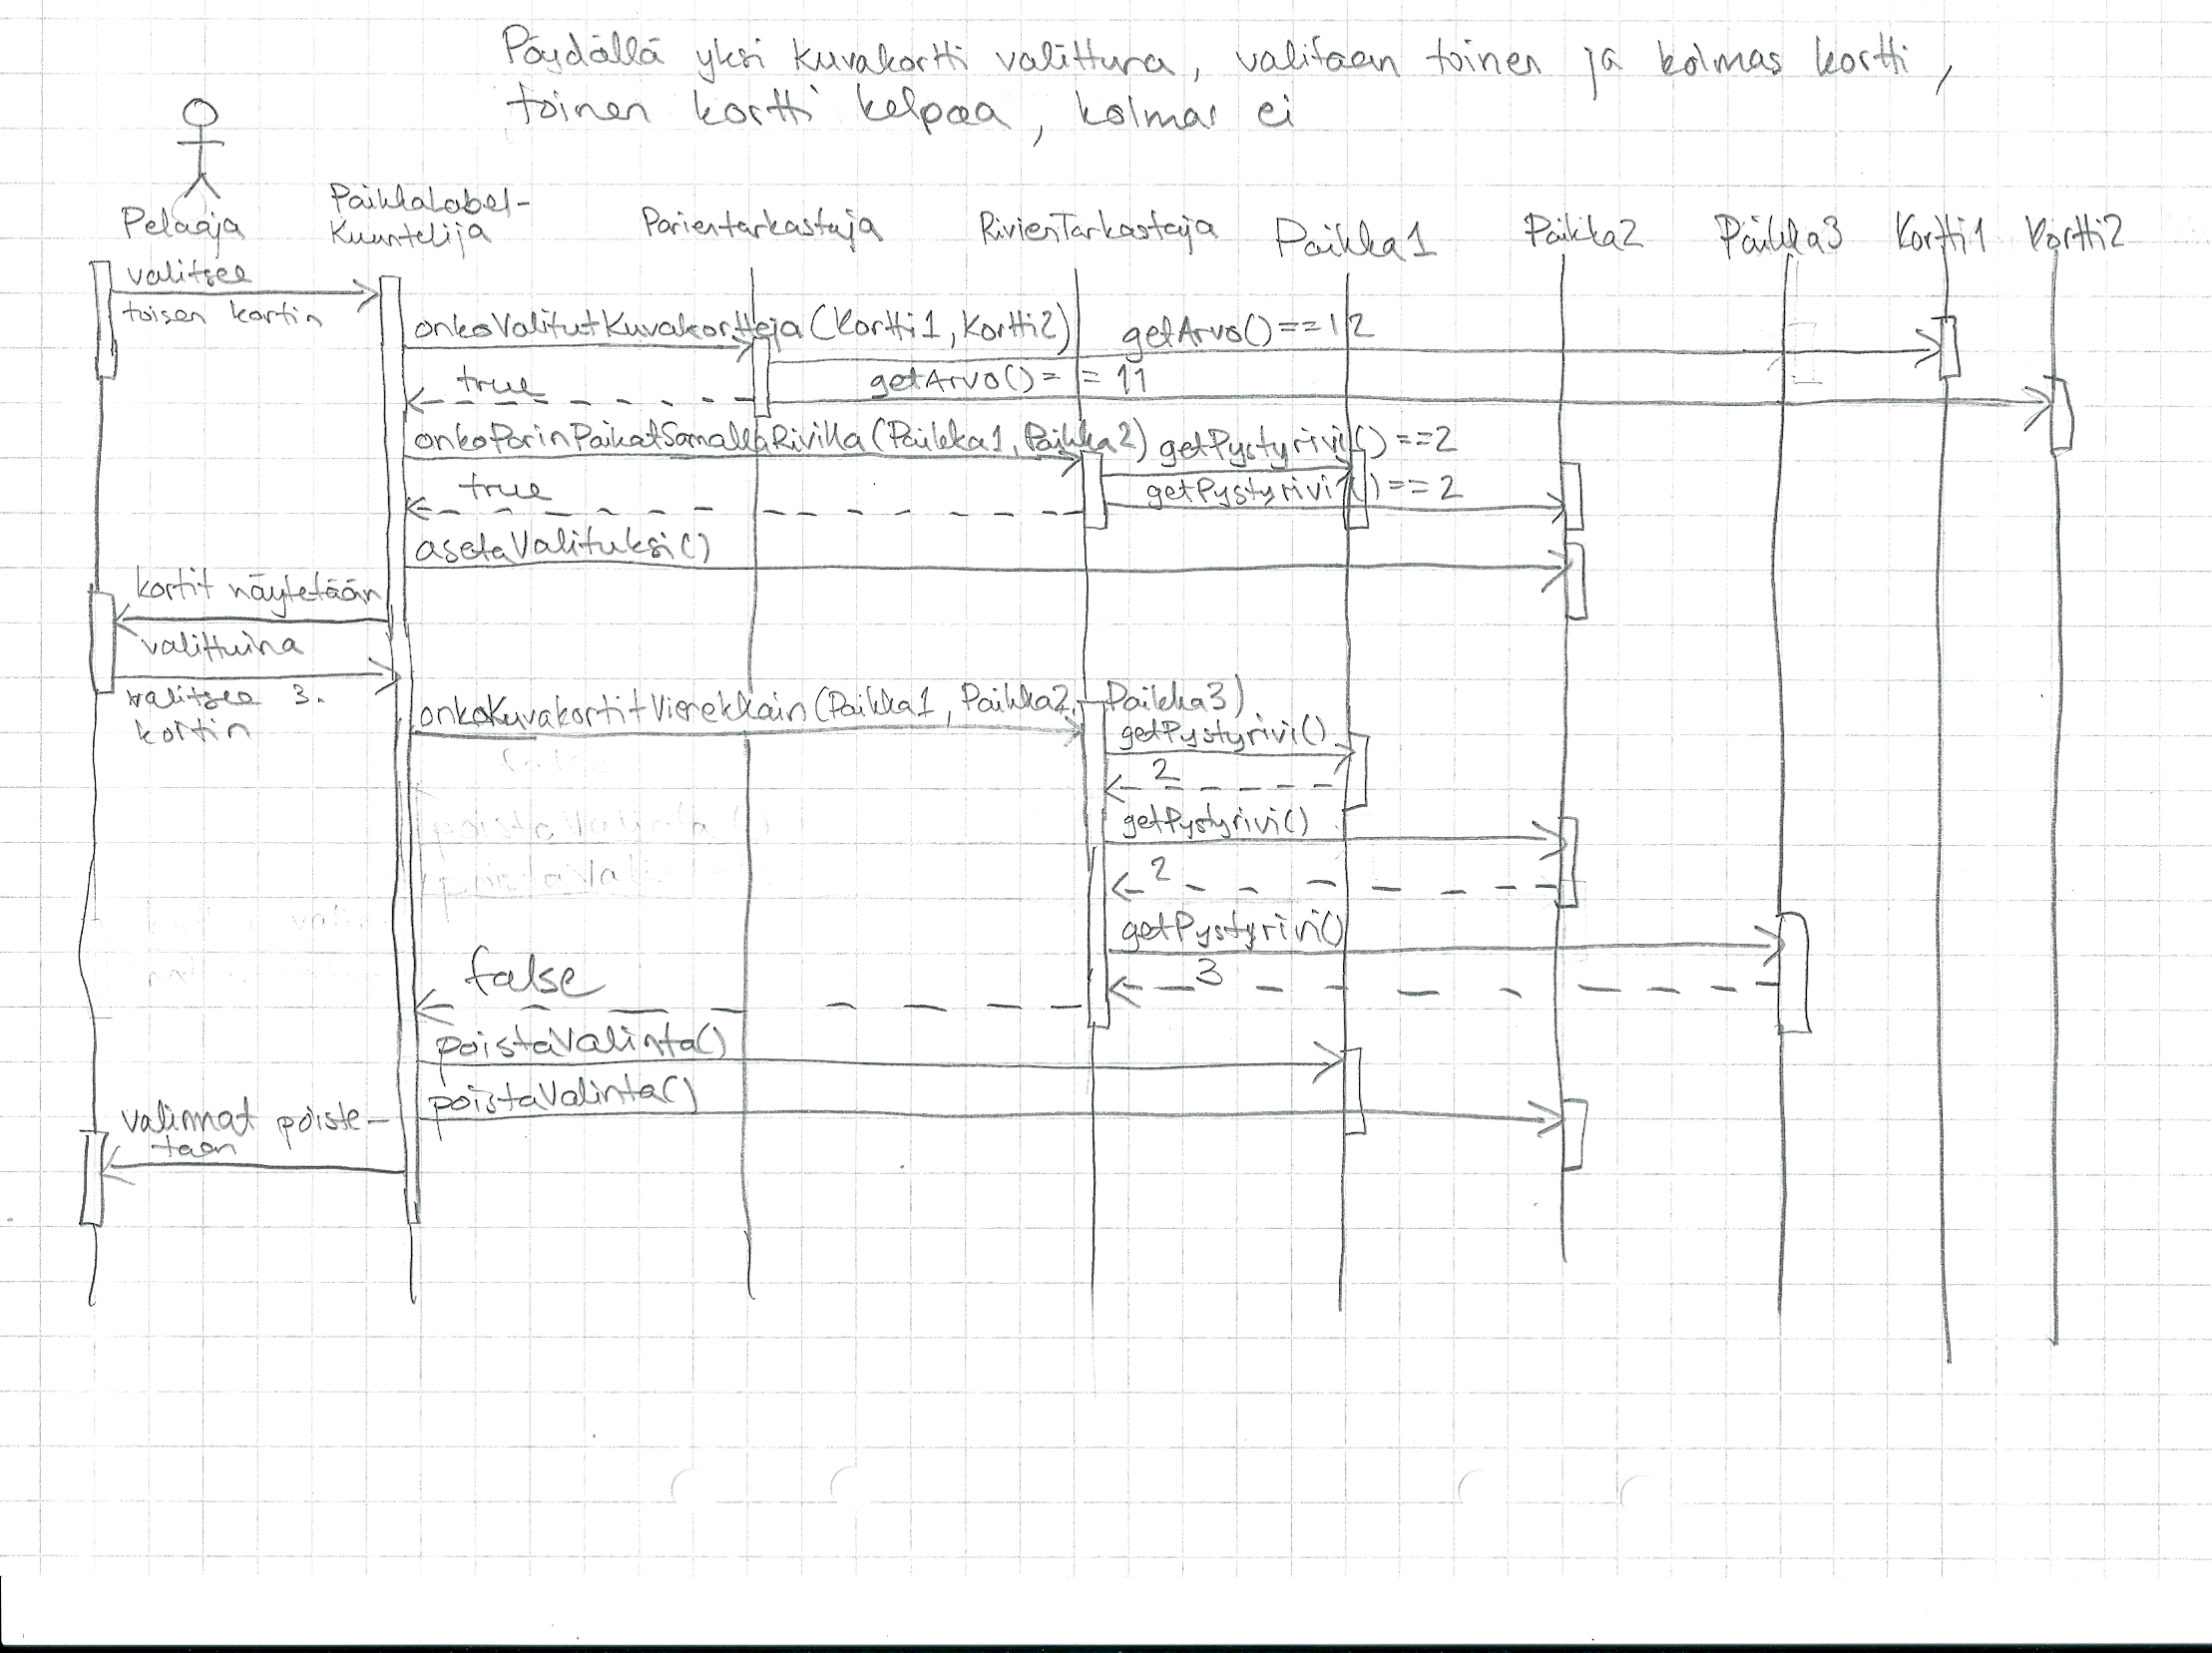 Pöydällä yksi kuvakortti valittuna, valitaan toinen ja kolmas kortti,
toinen kortti kelpaa, kolmas ei
Pelaaja
PaikkaLabel-
Kuuntelija
Parientarkastaja
RivienTarkastaja
Paikka1
Paikka2
Paikka3
Kortti1
Kortti2
valitsee
toisen kortin
onkoValitutKuvakortteja(Kortti1, Kortti2)
getArvo() == 12
true
getArvo() == 11
onkoParinPaikatSamallaRivilla(Paikka1, Paikka2)
getPystyrivi() == 2
true
getPystyrivi() == 2
asetaValituksi()
kortit näytetään
valittuina
valitsee 3.
kortin
onkoKuvakortitVierekkain(Paikka1, Paikka2, Paikka3)
getPystyrivi()
2
getPystyrivi()
2
getPystyrivi()
3
false
poistaValinta()
poistaValinta()
valinnat poiste-
taan